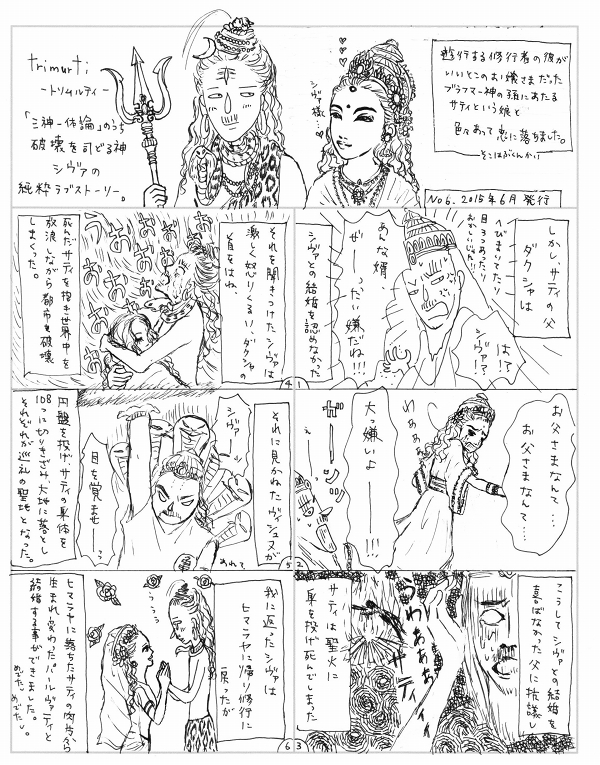 trimurti
ートリムルティー
「三神一体論」のうち
破壊を司どる神
シヴァの
純粋ラブストーリー。
シヴァ様…
遊行する修行者の彼が
いいとこのお嬢さまだった
ブラフマー神の孫にあたる
サティという娘と
色々あって恋に落ちました。
そこはぶくんかい
No6. 2015年6月発行
しかし、サティの父
ダクシャは
は!?
シヴァ?!
へびまいてたり
目3つあったり
おかしいじゃん!!
あんな婿
ぜーーったい嫌だね!!!
シヴァとの結婚を認めなかった
1
お父さまなんて…
お父さまなんて…
わぁぁぁ
大っ嫌いよーーー!!!
ガーーーン
2
こうしてシヴァとの結婚を
喜ばなかった父に抗議し
わぁぁぁぁ
サティィィ
サティは聖火に
身を投げ死んでしまった
3
それを聞きつけたシヴァは
激しく怒りくるい、ダクシャの
首をはね、
おおおおおおおお
死んだサティを抱き世界中を
放浪しながら都市を破壊
しまくった。
4
それに見かねたヴィシュヌが
シヴァ
目を覚ませーーっ
あれて
円盤を投げサティの身体を
108つに切りきざみ、大地に落とし
それぞれが巡礼の聖地となった。
5
我に返ったシヴァは
ヒマラヤに帰り修行に
戻ったが
ううう
ヒマラヤに落ちたサティの肉片から
生まれ変わったパールヴァティと
結婚する事ができました。
めでたし めでたし。
6